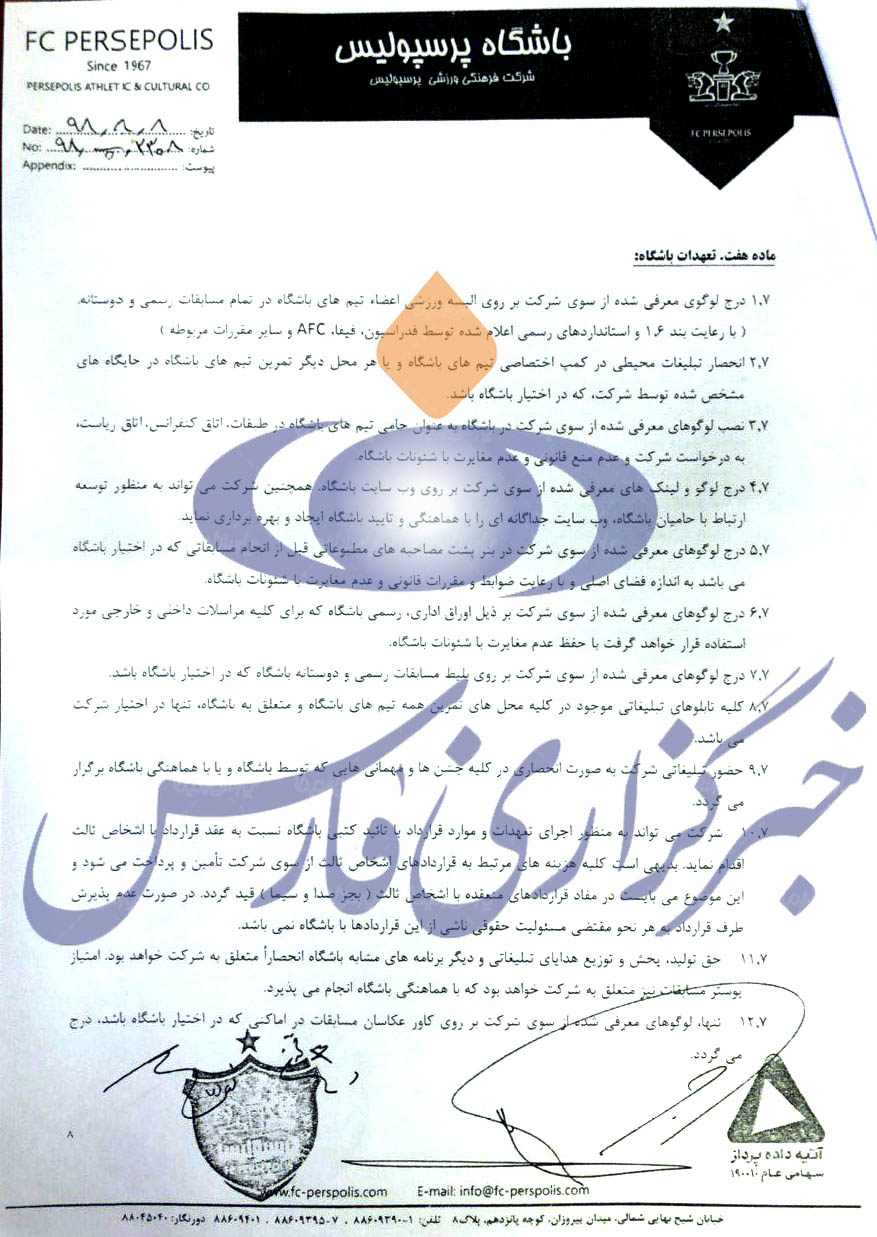 FC PERSEPOLIS
Since 1967
PERSEPOLIS ATHLETIC & CULTURAL CO
باشگاه پرسپولیس
شرکت فرهنگی ورزشی پرسپولیس
FC PERSEPOLIS
Date: ۹۸٫۸٫۸ تاریخ:
No: شماره:
Appendix: پیوست:
ماده هفت. تعهدات باشگاه:
۱٫۷ درج لوگوی معرفی شده از سوی شرکت بر روی البسه ورزشی اعضاء تیم های باشگاه در تمام مسابقات رسمی و دوستانه.
( با رعایت بند ۱٫۶ و استانداردهای رسمی اعلام شده توسط فدراسیون، فیفا، AFC و سایر مقررات مربوطه )
۲٫۷ انحصار تبلیغات محیطی در کمپ اختصاصی تیم های باشگاه و یا هر محل دیگر تمرین تیم های باشگاه در جایگاه های
مشخص شده توسط شرکت، که در اختیار باشگاه باشد.
۳٫۷ نصب لوگوهای معرفی شده از سوی شرکت در باشگاه به عنوان حامی تیم های باشگاه در طبقات، اتاق کنفرانس، اتاق ریاست،
به درخواست شرکت و عدم منع قانونی و عدم مغایرت با شئونات باشگاه.
۴٫۷ درج لوگو و لینک های معرفی شده از سوی شرکت بر روی وب سایت باشگاه. همچنین شرکت می تواند به منظور توسعه
ارتباط با حامیان باشگاه، وب سایت جداگانه ای را با هماهنگی و تایید باشگاه ایجاد و بهره برداری نماید.
۵٫۷ درج لوگوهای معرفی شده از سوی شرکت در بنر پشت مصاحبه های مطبوعاتی قبل از انجام مسابقاتی که در اختیار باشگاه
می باشد به اندازه فضای اصلی و با رعایت ضوابط و مقررات قانونی و عدم مغایرت با شئونات باشگاه.
۶٫۷ درج لوگوهای معرفی شده از سوی شرکت بر ذیل اوراق اداری، رسمی باشگاه که برای کلیه مراسلات داخلی و خارجی مورد
استفاده قرار خواهد گرفت با حفظ عدم مغایرت با شئونات باشگاه.
۷٫۷ درج لوگوهای معرفی شده از سوی شرکت بر روی بلیط مسابقات رسمی و دوستانه باشگاه که در اختیار باشگاه باشد.
۸٫۷ کلیه تابلوهای تبلیغاتی موجود در کلیه محل های تمرین همه تیم های باشگاه و متعلق به باشگاه، تنها در اختیار شرکت
می باشد.
۹٫۷ حضور تبلیغاتی شرکت به صورت انحصاری در کلیه جشن ها و مهمانی هایی که توسط باشگاه و یا با هماهنگی باشگاه برگزار
می گردد.
۱۰٫۷ شرکت می تواند به منظور اجرای تعهدات و موارد قرارداد با تائید کتبی باشگاه نسبت به عقد قرارداد با اشخاص ثالث
اقدام نماید. بدیهی است کلیه هزینه های مرتبط به قراردادهای اشخاص ثالث از سوی شرکت تأمین و پرداخت می شود و
این موضوع می بایست در مفاد قراردادهای منعقده با اشخاص ثالث ( بجز صدا و سیما ) قید گردد. در صورت عدم پذیرش
طرف قرارداد به هر نحو مقتضی مسئولیت حقوقی ناشی از این قراردادها با باشگاه نمی باشد.
۱۱٫۷ حق تولید، پخش و توزیع هدایای تبلیغاتی و دیگر برنامه های مشابه باشگاه انحصاراً متعلق به شرکت خواهد بود. امتیاز
پوستر مسابقات نیز متعلق به شرکت خواهد بود که با هماهنگی باشگاه انجام می پذیرد.
۱۲٫۷ تنها، لوگوهای معرفی شده از سوی شرکت بر روی کاور عکاسان مسابقات در اماکنی که در اختیار باشگاه باشد، درج
می گردد.
خبرگزاری فارس
۸
آتیه داده پرداز
سهامی عام ۱۹۰۰۱۰
www.fc-perspolis.com E-mail: info@fc-perspolis.com
خیابان شیخ بهایی شمالی، میدان پیروزان، کوچه پانزدهم، پلاک۸ تلفن: ۱-۸۸۶۰۹۳۹۰ ، ۷-۸۸۶۰۹۳۹۵ ، ۸۸۶۰۹۴۰۱ دورنگار: ۸۸۰۴۵۰۴۰